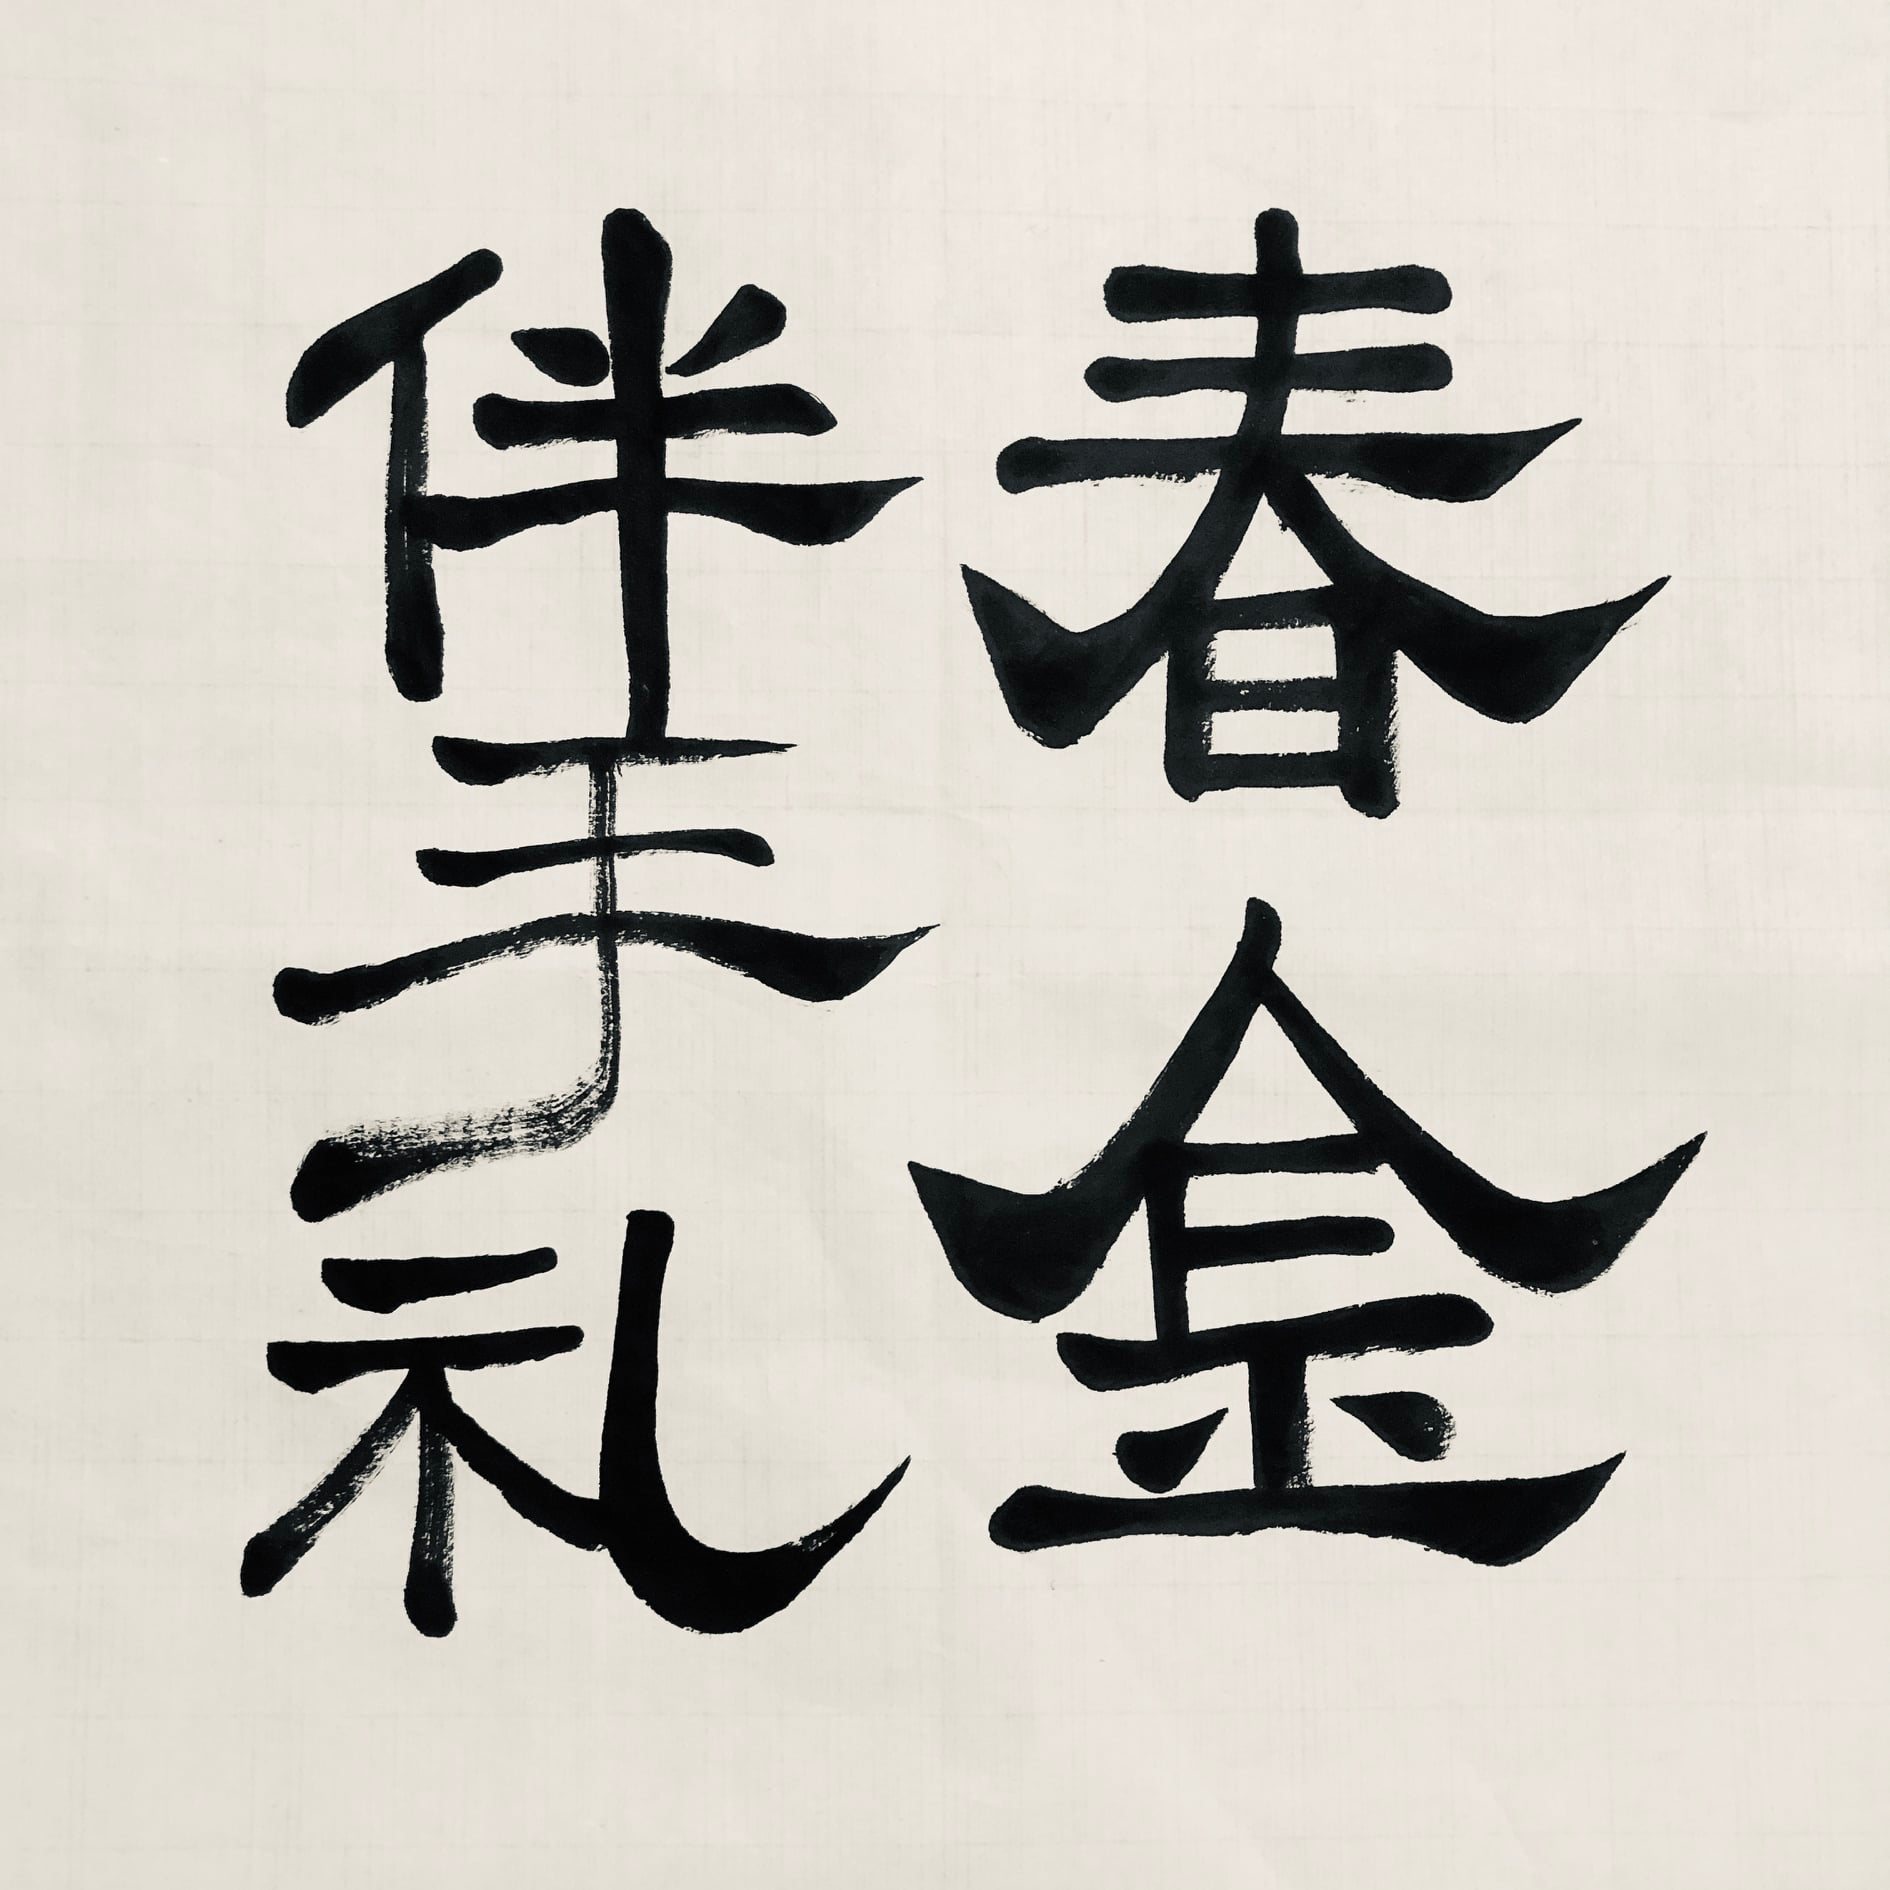 春金
伴手礼